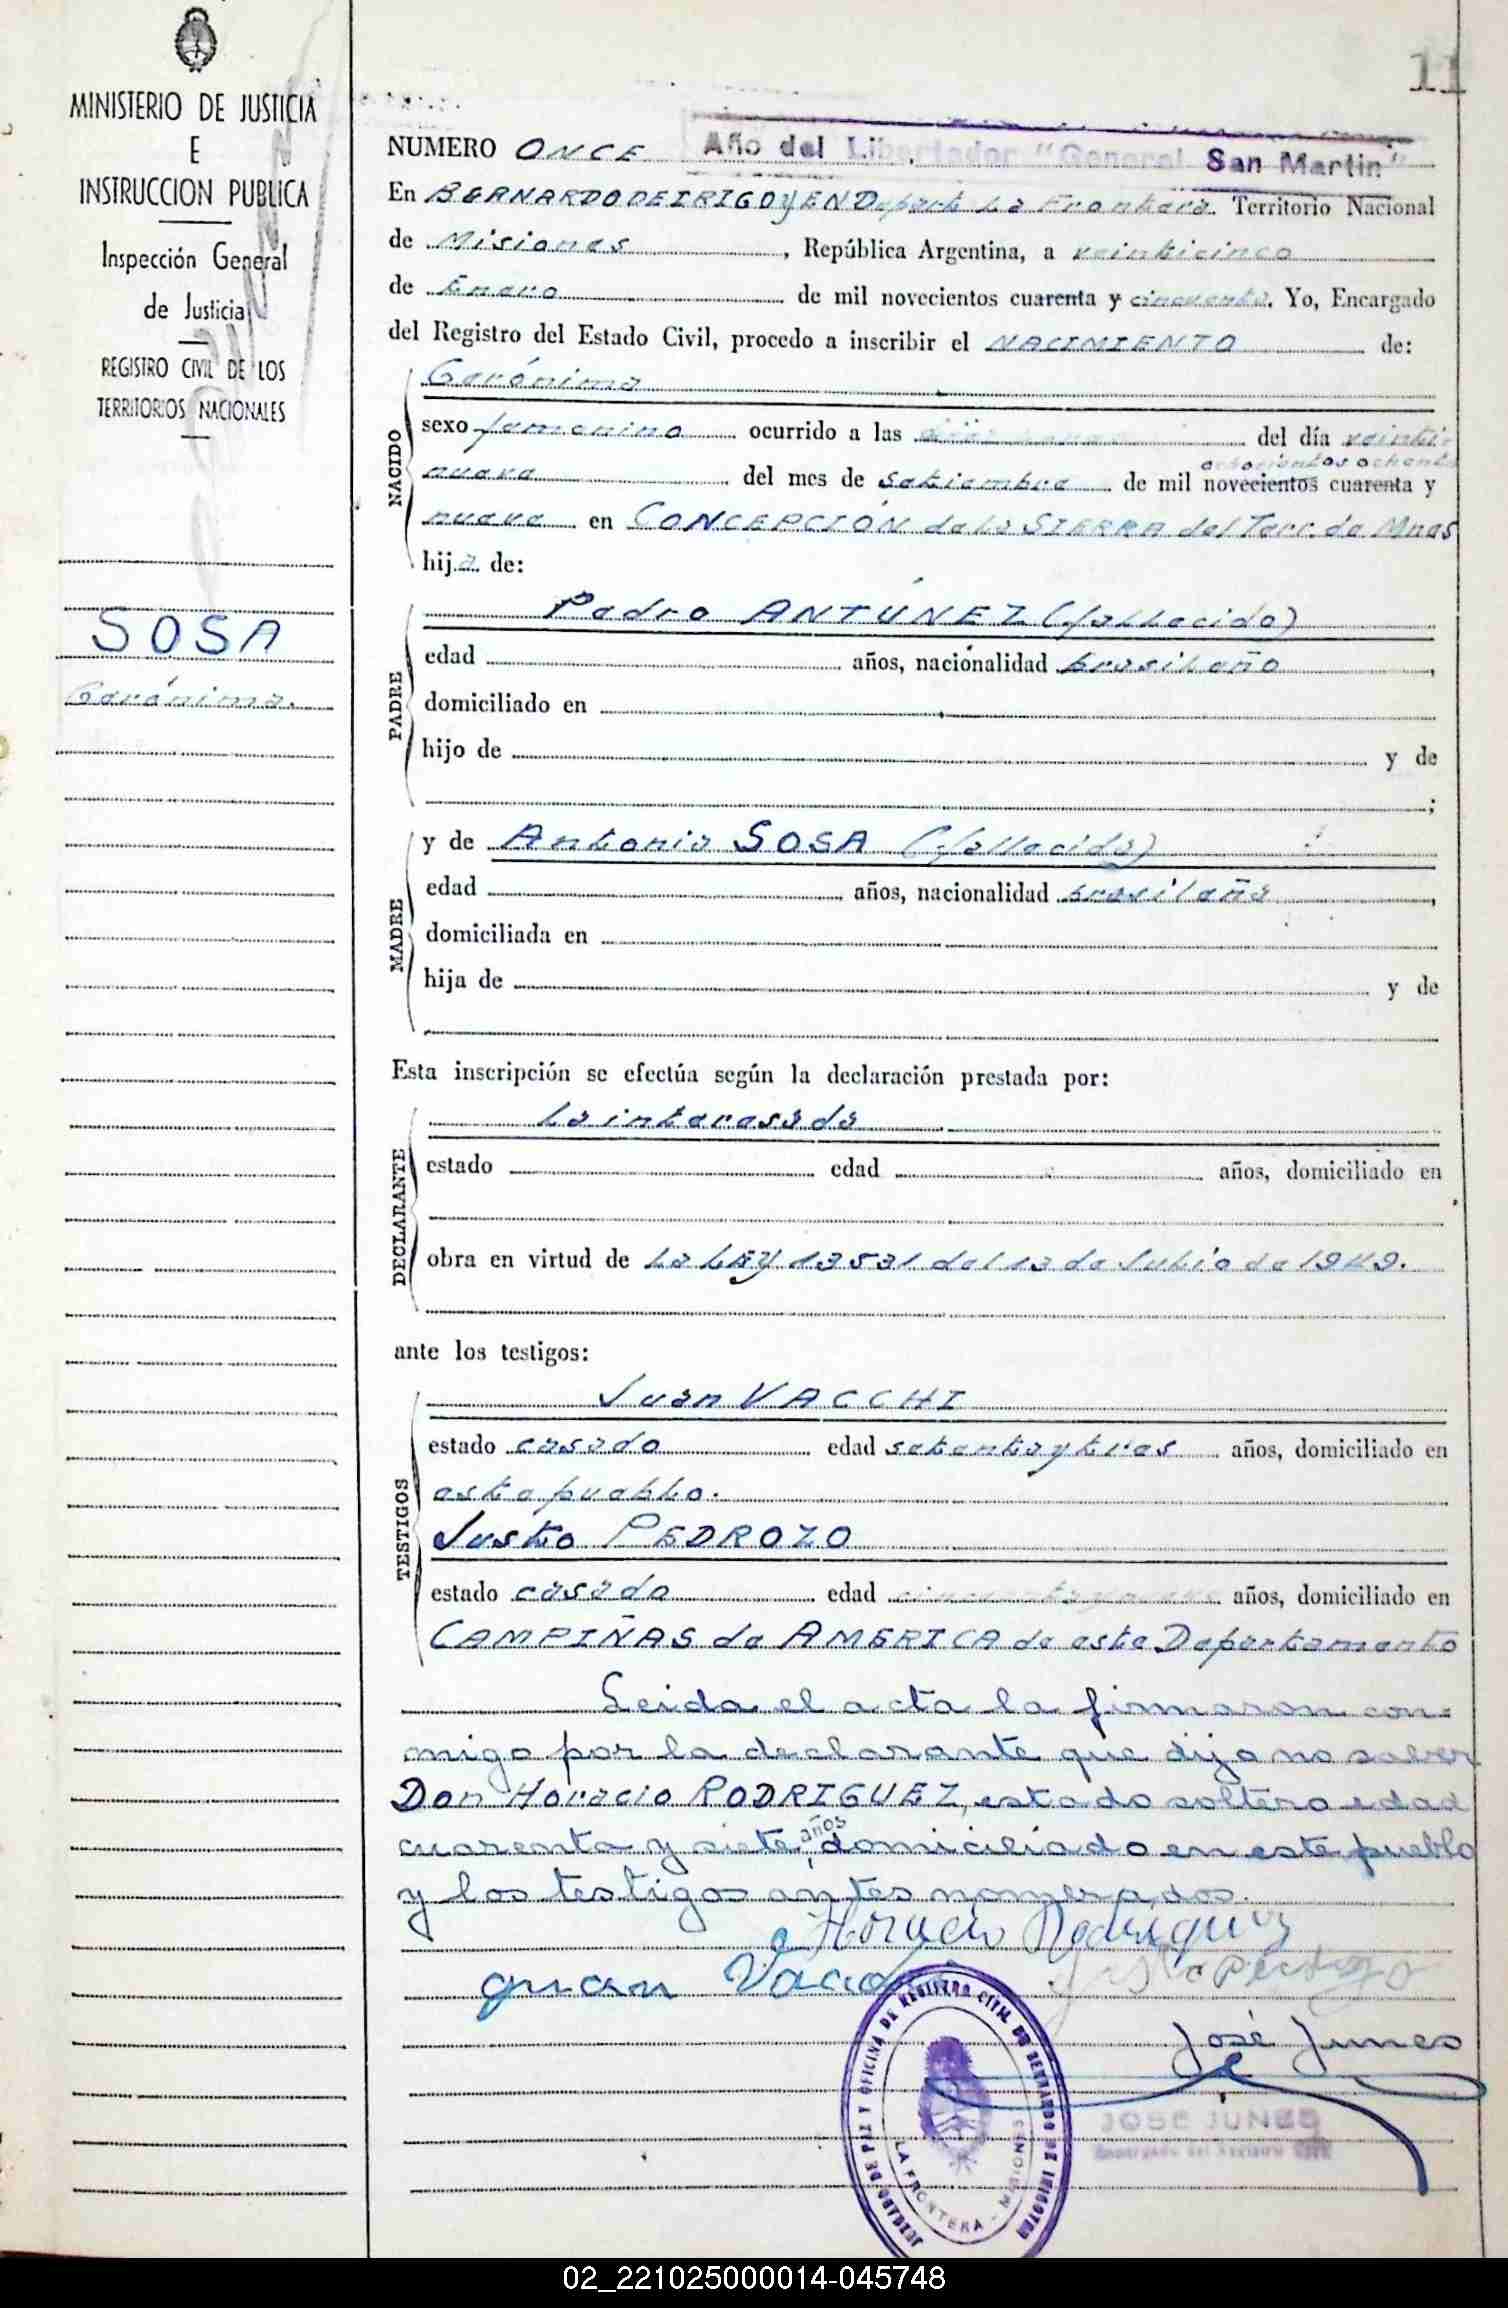 11
MINISTERIO DE JUSTICIA
E
INSTRUCCION PUBLICA
Inspección General
de Justicia
REGISTRO CIVIL DE LOS
TERRITORIOS NACIONALES
SOSA
Gerónima.
Año del Libertador "General San Martin"
NUMERO ONCE
En BERNARDO DE IRIGOYEN Depart. La Frontera. Territorio Nacional
de Misiones, República Argentina, a veinticinco
de Enero de mil novecientos cuarenta y cincuenta. Yo, Encargado
del Registro del Estado Civil, procedo a inscribir el NACIMIENTO de:
NACIDO
Gerónima
sexo femenino ocurrido a las del día veinti-
ochocientos ochenta
nueve del mes de setiembre de mil novecientos cuarenta y
nueve en CONCEPCIÓN de la SIERRA del Terr. de Mnes
hija de:
PADRE
Pedro ANTÚNEZ (fallecido)
edad años, nacionalidad brasileño,
domiciliado en
hijo de y de
;
MADRE
y de Antonia SOSA (fallecida)
edad años, nacionalidad brasileña,
domiciliada en
hija de y de
Esta inscripción se efectúa según la declaración prestada por:
DECLARANTE
La interesada
estado edad años, domiciliado en
obra en virtud de la LEY 13531 del 13 de Julio de 1949.
ante los testigos:
TESTIGOS
Juan VACCHI
estado casado edad setenta y tres años, domiciliado en
este pueblo.
Justo PEDROZO
estado casado edad cincuenta y años, domiciliado en
CAMPIÑAS de AMERICA de este Departamento
Leida el acta la firmaron con-
migo por la declarante que dijo no saber
Don Horacio RODRIGUEZ, estado soltero edad
cuarenta y siete años, domiciliado en este pueblo
y los testigos antes nomerados.
Horacio Rodriguez
Juan Vacchi
Justo Pedrozo
José Junes
JOSE JUNES
Encargado del Registro Civil
JUZGADO DE PAZ Y OFICINA DE REGISTRO CIVIL DE BERNARDO DE IRIGOYEN
LA FRONTERA - MISIONES
02_221025000014-045748